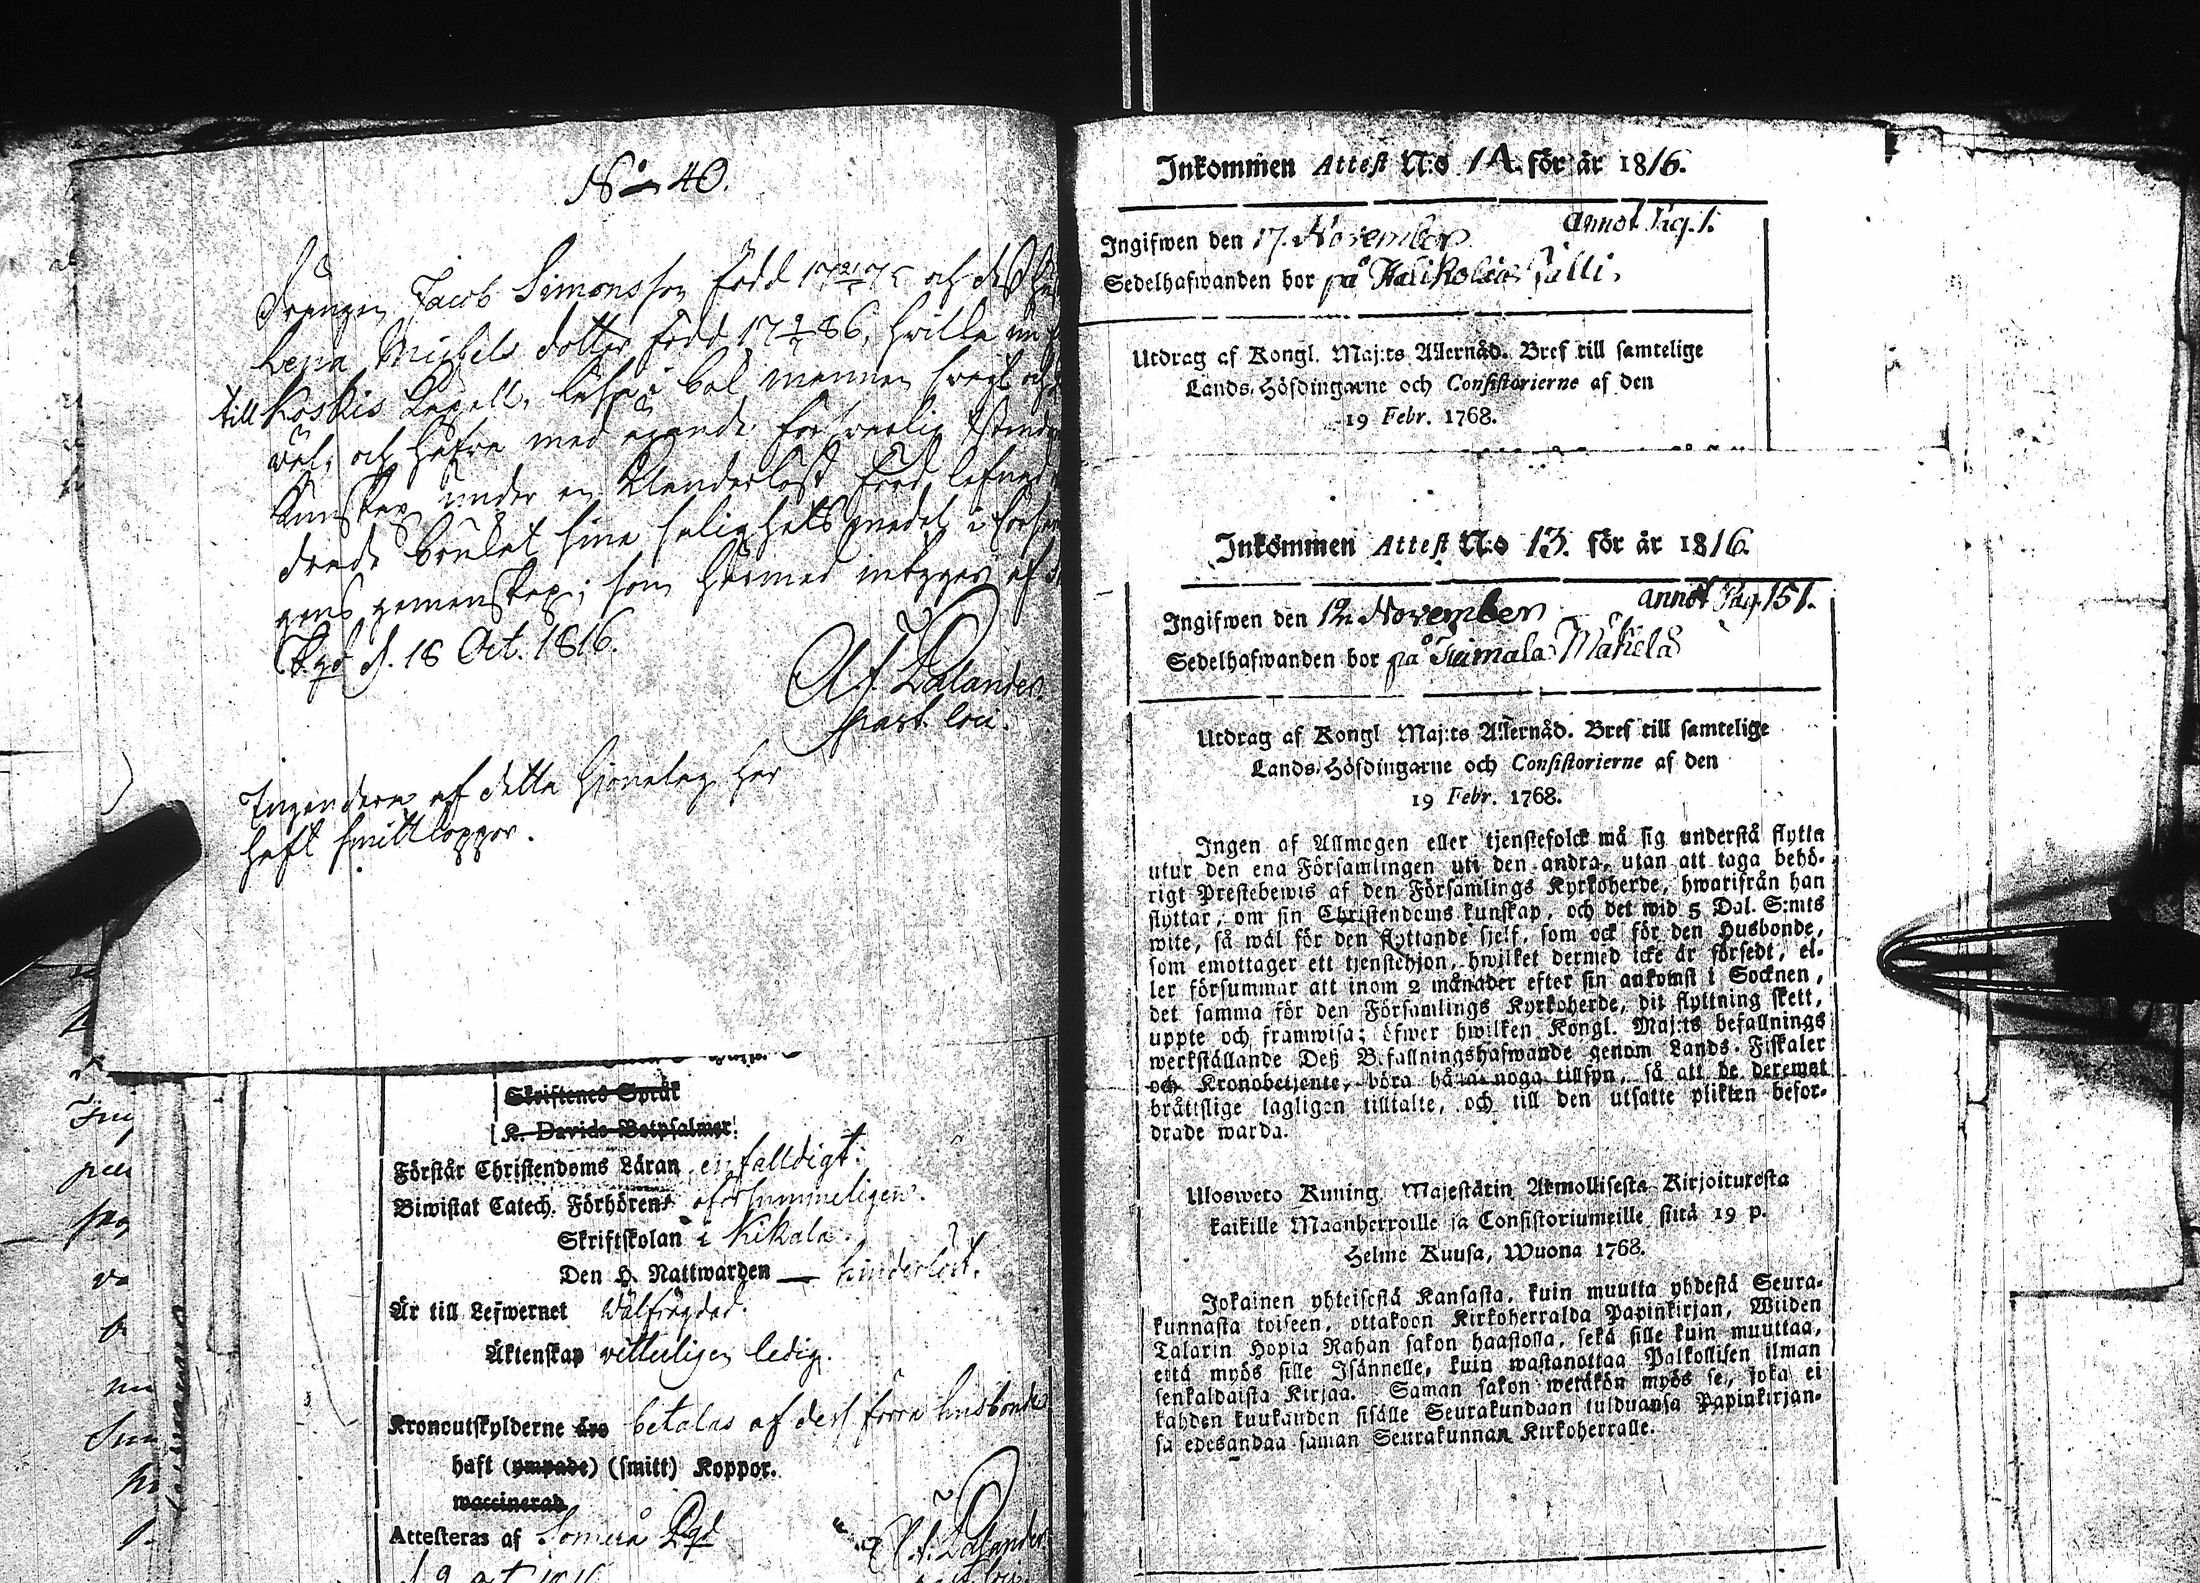 No 40.
Drängen Jacob Simonsson född 17 75 och dess
Lena Michels dotter född 17 9/7 86, hvilka nu
till Koskis Capell, läsa i bok mannen svagt och
väl, och hafva med ägande försvarlig Christendoms
kunskap under en klanderlöst förd lefnad
brukat sina salighets medel i försam
gens gemenskap; som härmed intygas af
Pgd d. 18 Oct. 1816.
Alandes
Past. loci.
Ingendera af detta Hjonelag har
haft smittkoppor.
Skriftenes Språk
K. Davids Botpsalmer.
Förstår Christendoms Läran enfalldigt.
Biwistat Catech. Förhören oförsummeligen.
Skriftskolan i Kikala.
Den H. Nattwarden — hinderlöst.
Är till Lefwernet välfrägdad.
Äktenskap vitterligen ledig.
Kronoutskylderne äro betalas af dess förra husbonde
haft (ympade) (smitt) Koppor.
waccinerad
Attesteras af Somero Pgd
Inkommen Attest N:o 14. för år 1816.
annot Pag. 1.
Ingifwen den 17. November
Sedelhafwanden bor på Halikola Jälli.
Utdrag af Kongl. Maj:ts Allernåd. Bref till samtelige
Lands-Höfdingarne och Consistorierne af den
19 Febr. 1768.
Inkommen Attest N:o 13. för år 1816.
annot Pag. 151.
Ingifwen den 12 November
Sedelhafwanden bor på Tuimala Mäkelä
Utdrag af Kongl Maj:ts Allernåd. Bref till samtelige
Lands-Höfdingarne och Consistorierne af den
19 Febr. 1768.
Ingen af Allmogen eller tjenstefolck må sig understå flytta
utur den ena Församlingen uti den andra, utan att taga behö-
rigt Prestebewis af den Församlings Kyrkoherde, hwarifrån han
flyttar, om sin Christendoms kunskap, och det wid 5 Dal. S:mts
wite, så wäl för den flyttande sjelf, som ock för den Husbonde,
som emottager ett tjenstehjon, hwilket dermed icke är försedt, el-
ler försummar att inom 2 månader efter sin ankomst i Socknen,
det samma för den Församlings Kyrkoherde, dit flyttning skett,
uppte och framwisa; öfwer hwilken Kongl. Maj:ts befallnings
werkställande Deß Befallningshafwande genom Lands-Fiskaler
och Kronobetjente, böra hafwa noga tillsyn, så att de deremot
bråttslige lagligen tilltalte, och till den utsatte plikten befor-
drade warda.
Ulosweto Kuning. Majestätin Armollisesta Kirjoituxesta
kaikille Maanherroille ja Consistoriumeille siitä 19 p.
Helme Kuusa, Wuona 1768.
Jokainen yhteisestä Kansasta, kuin muutta yhdestä Seura-
kunnasta toiseen, ottakoon Kirkoherralda Papinkirjan, Wiiden
Talarin Hopia Rahan sakon haastolla, sekä sille kuin muuttaa,
että myös sille Isännelle, kuin wastanottaa Palkollisen ilman
senkaldaista Kirjaa. Saman sakon wetäkön myös se, joka ei
kahden kuukauden sisälle Seurakundaan tulduansa Papinkirjan-
sa edesandaa saman Seurakunnan Kirkoherralle.